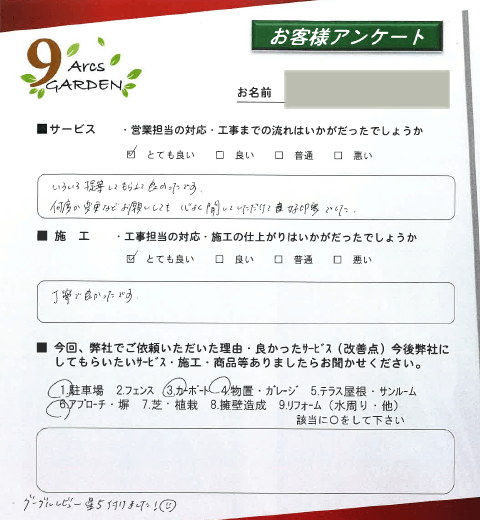 お客様アンケート
9 Arcs GARDEN
お名前
■サービス ・営業担当の対応・工事までの流れはいかがだったでしょうか
☑ とても良い □ 良い □ 普通 □ 悪い
いろいろ提案してもらえて良かったです。
何度か変更などお願いしても 心よく聞いていただけて良い好印象でした。
■施 工 ・工事担当の対応・施工の仕上がりはいかがだったでしょうか
☑ とても良い □ 良い □ 普通 □ 悪い
丁寧で良かったです。
■ 今回、弊社でご依頼いただいた理由・良かったｻｰﾋﾞｽ（改善点）今後弊社に
してもらいたいサービス・施工・商品等ありましたらお聞かせください。
1.駐車場 2.フェンス 3.カーポート 4.物置・ガレージ 5.テラス屋根・サンルーム
6.アプローチ・塀 7.芝・植栽 8.擁壁造成 9.リフォーム（水周り・他）
該当に○をして下さい
グーグルレビュー星5付けました!